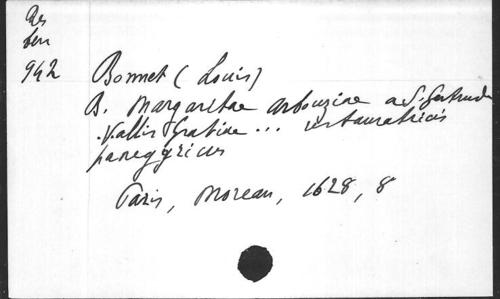 Res
8en
942
Bonnet (Louis)
B. Margaretae Arbouzine a S. Gertrude
Vallis Gratiae ... restauratricis
panegyricus
Paris, Moreau, 1628, 8